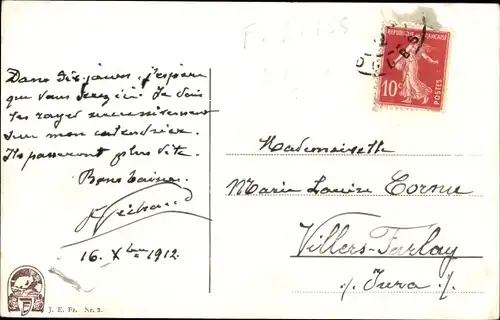 Dans dix jours, j'espère
que vous serez ici. Je vais
les rayer successivement
sur mon calendrier.
Ils passeront plus vite.
Bons baisers.
16. Xbre 1912.
REPUBLIQUE FRANÇAISE
10c
POSTES
Mademoiselle
Marie Louise Cornu
Villers-Farlay
./. Jura ./.
J. E. Fr. Nr. 2.